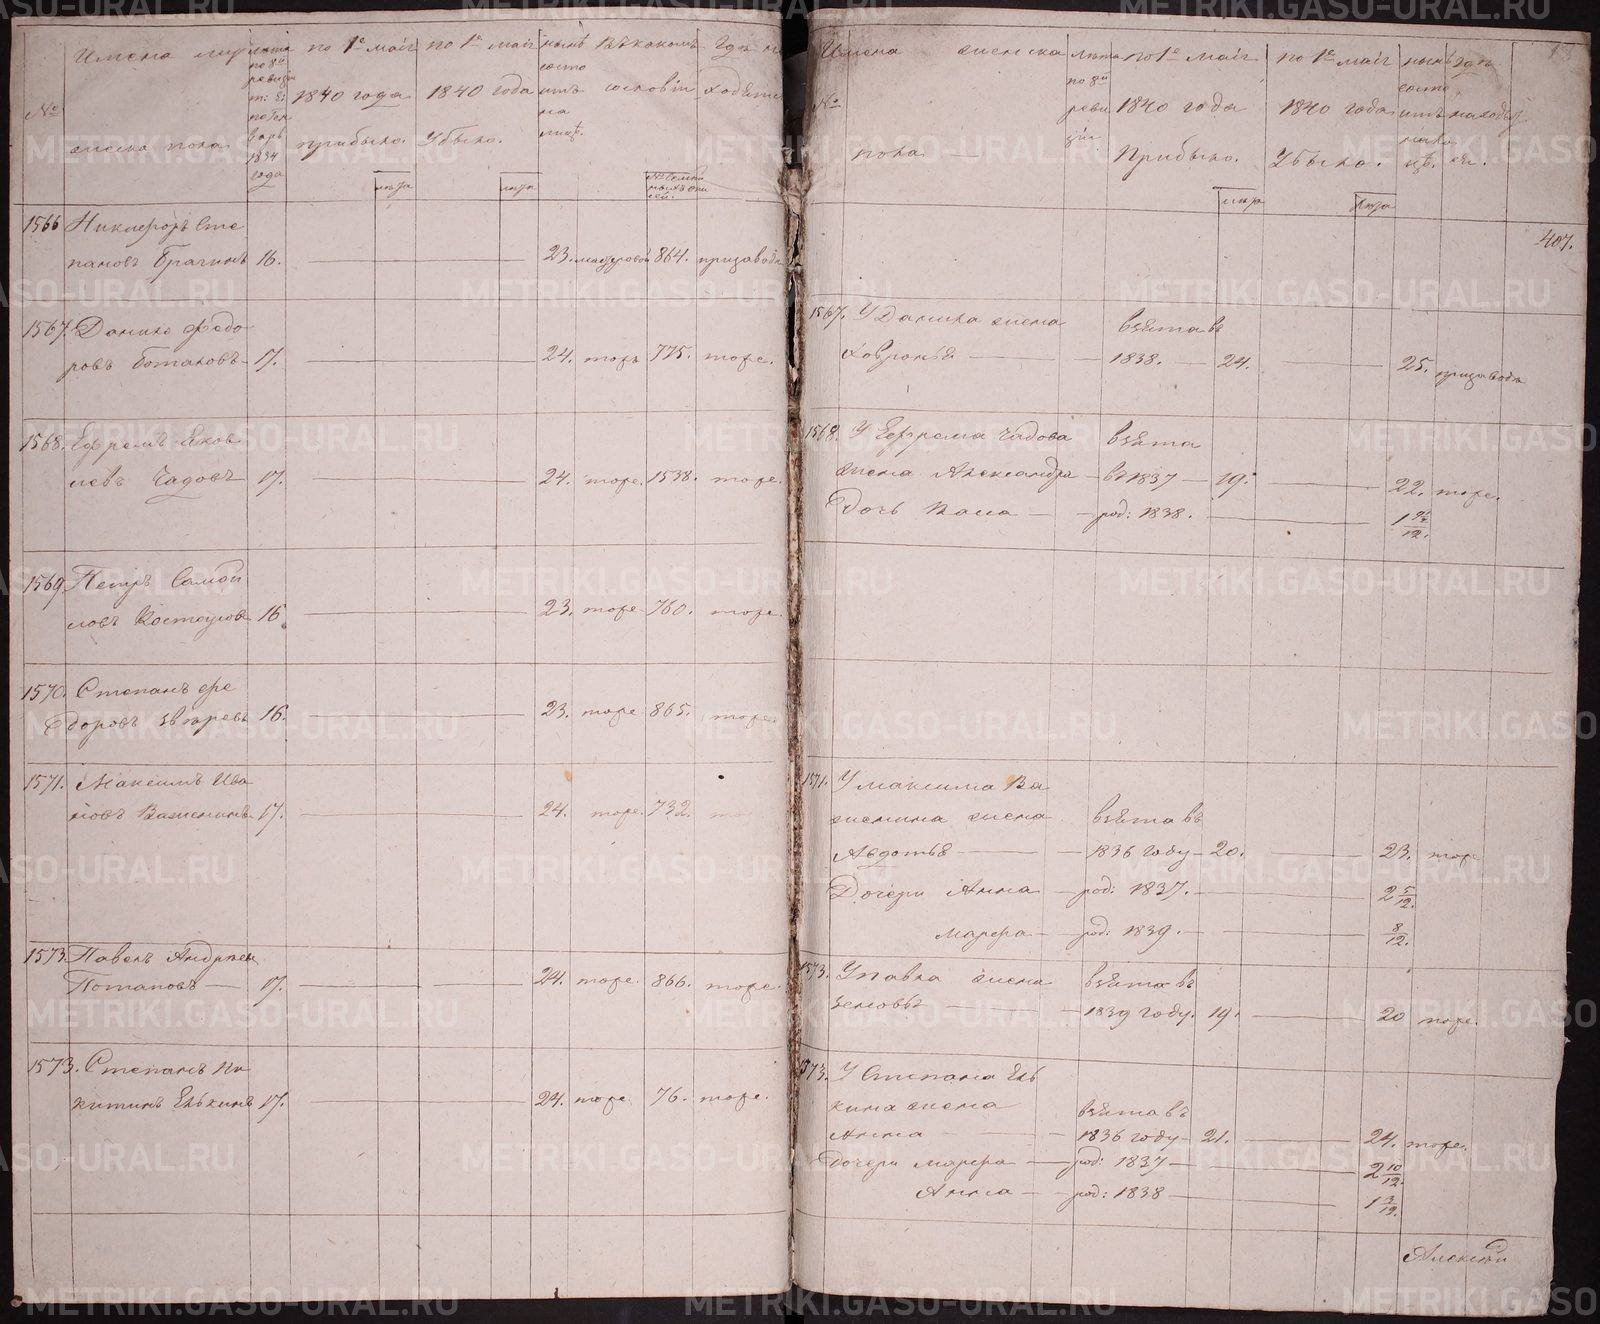 №
Имена
лѣта по 8й ревизіи
1834 года
по 1е маія 1840 года прибыло.
лѣта
по 1е маія 1840 года Убыло.
лѣта
нынѣ состоитъ на лицѣ.
В какомъ сословіи
Гдѣ
1566 Никифоръ Степановъ Брагинъ 16. 23. мастеровой 864. при заводѣ
1567. Данило Федоровъ Потаповъ 17. 24. тоже 775. тоже.
1568. Ефремъ Яковлевъ Чадовъ 17. 24. тоже. 1538. тоже.
1569 Петръ Самойловъ 16. 23. тоже 760. тоже.
1570. Степанъ Федоровъ Звѣревъ 16. 23. тоже 865. тоже
1571. Максимъ Ивановъ Важенинъ 17. 24. тоже. 732.
1573 Павелъ Андреевъ Потаповъ 17. 24. тоже. 866. тоже.
1573. Степанъ Никитинъ Елькинъ 17. 24. тоже 76. тоже.
№
Имена женска пола
лѣта по 8й ревизіи
по 1е маія 1840 года Прибыло.
лѣта
по 1е маія 1840 года Убыло.
лѣта
нынѣ состоитъ
гдѣ находятся.
407.
1567. У Данила жена взята въ
Ховронья 1838. 24. 25. при заводѣ
1568. У Ефрема Чадова взята
жена Александра въ 1837 19. 22. тоже.
Дочь род: 1838. 1 9/12.
1571. У Максима Ва
женина жена взята въ
Авдотья 1836 году 20. 23. тоже
Дочери Анна род: 1837. 2 5/12.
Марфа род: 1839. 8/12.
1573. У Павла жена взята въ
1839 году. 19. 20 тоже.
1573. У Степана Ель
кина жена взята въ
Анна 1836 году 21. 24. тоже.
Дочери Марфа род: 1837 2 10/12.
Анна род: 1838 1 3/12.
METRIKI.GASO-URAL.RU